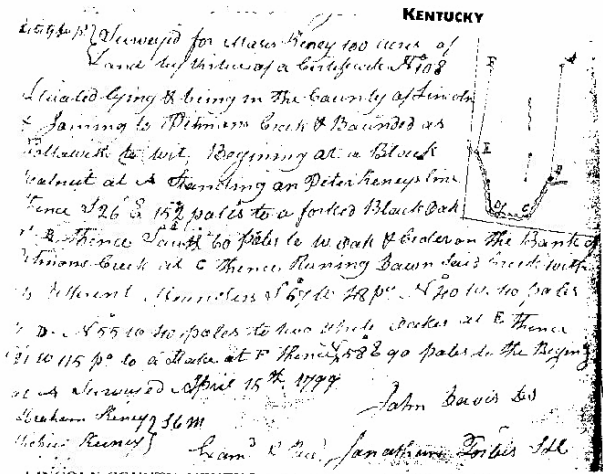 KENTUCKY
Surveyed for Moses Keney 100 acres of
Land by Virtue of a Certificate No 108
Situated lying & being in the County of Lincoln
& Joining to Pitmans Creek & Bounded as
followeth to wit, Beginning at a Black
Walnut at A Standing on Peter Keneys line
Thence S 26 E 152 poles to a forked Black Oak
at B Thence South 60 poles to W oak & Ceder on the Bank of
Pitmans Creek at C Thence Runing Down Said Creek with
its Different Meanders S 67 W 48 po N 40 W 40 poles
D. N 55 W 40 poles to two white oakes at E Thence
W 115 po to a Stake at F Thence 58 E 90 poles to the Begining
at A Surveyed April 15th 1799
John Davis DS
Abraham Keney } S C M
Keney }
Exam'd & Jonathan Forbis SLC
F
A
E
B
D
C